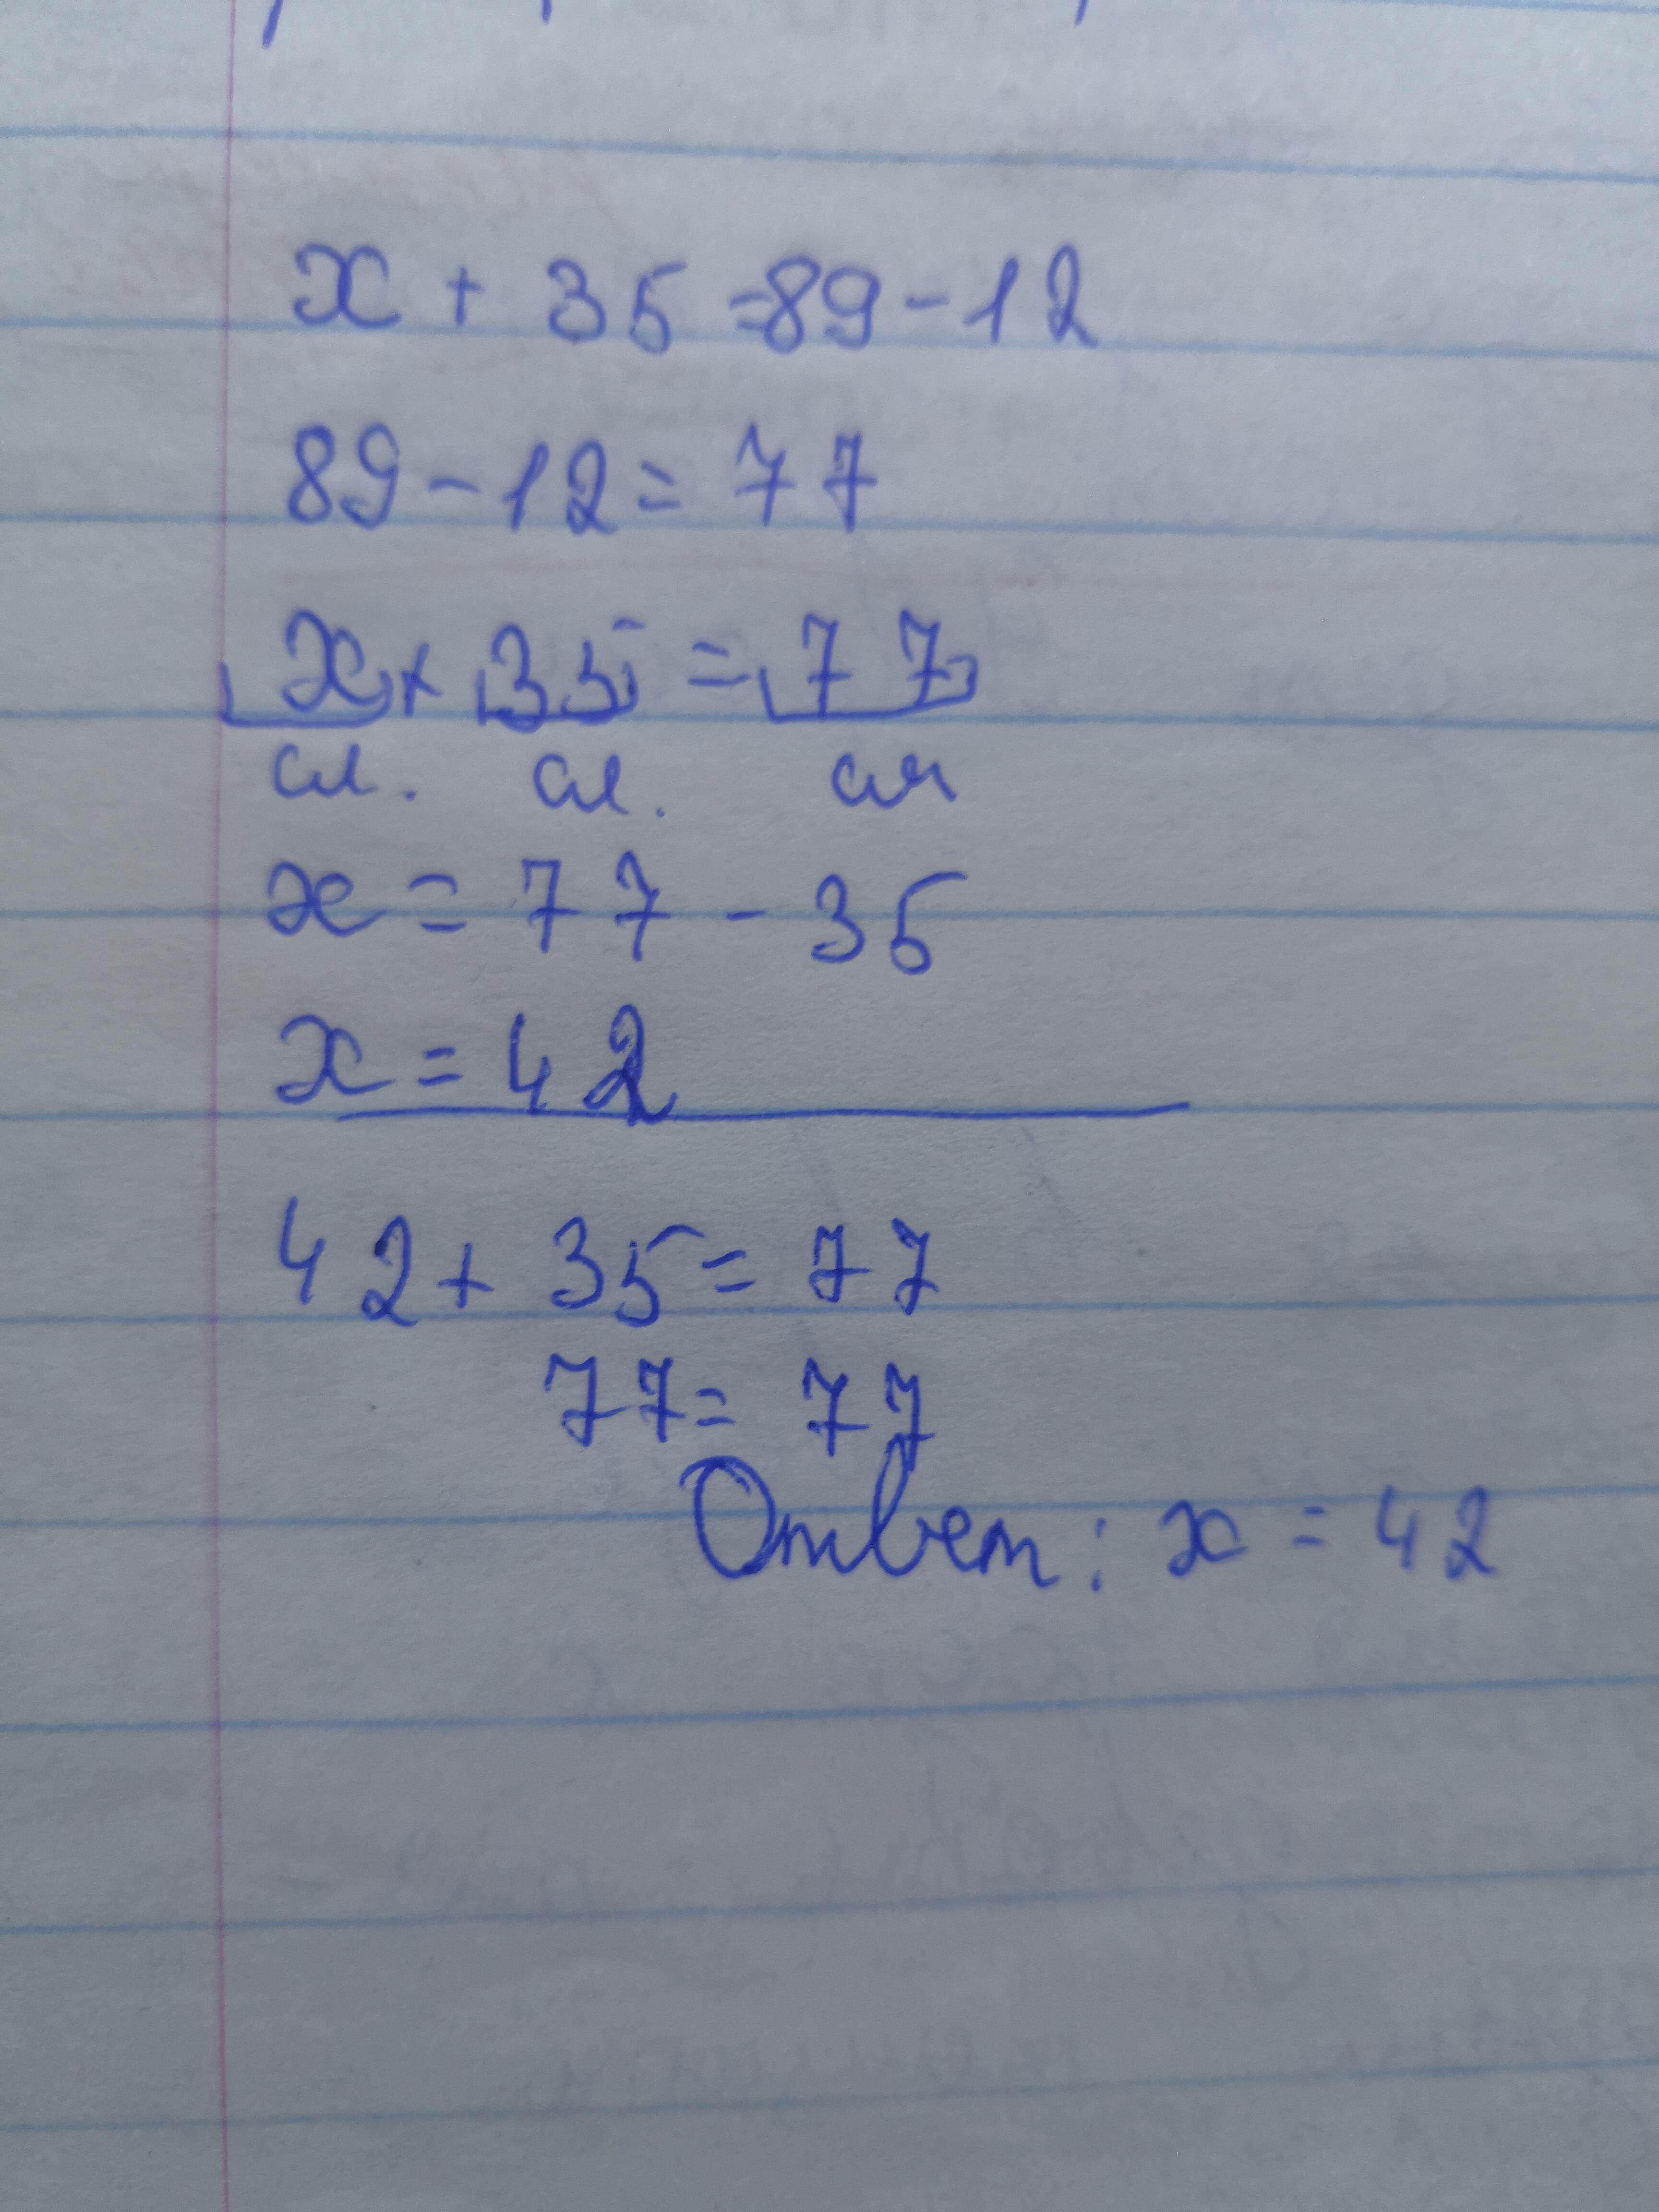 x + 35 = 89 - 12
89 - 12 = 77
x + 35 = 77
сл. сл. см
x = 77 - 35
x = 42
42 + 35 = 77
77 = 77
Ответ: x = 42